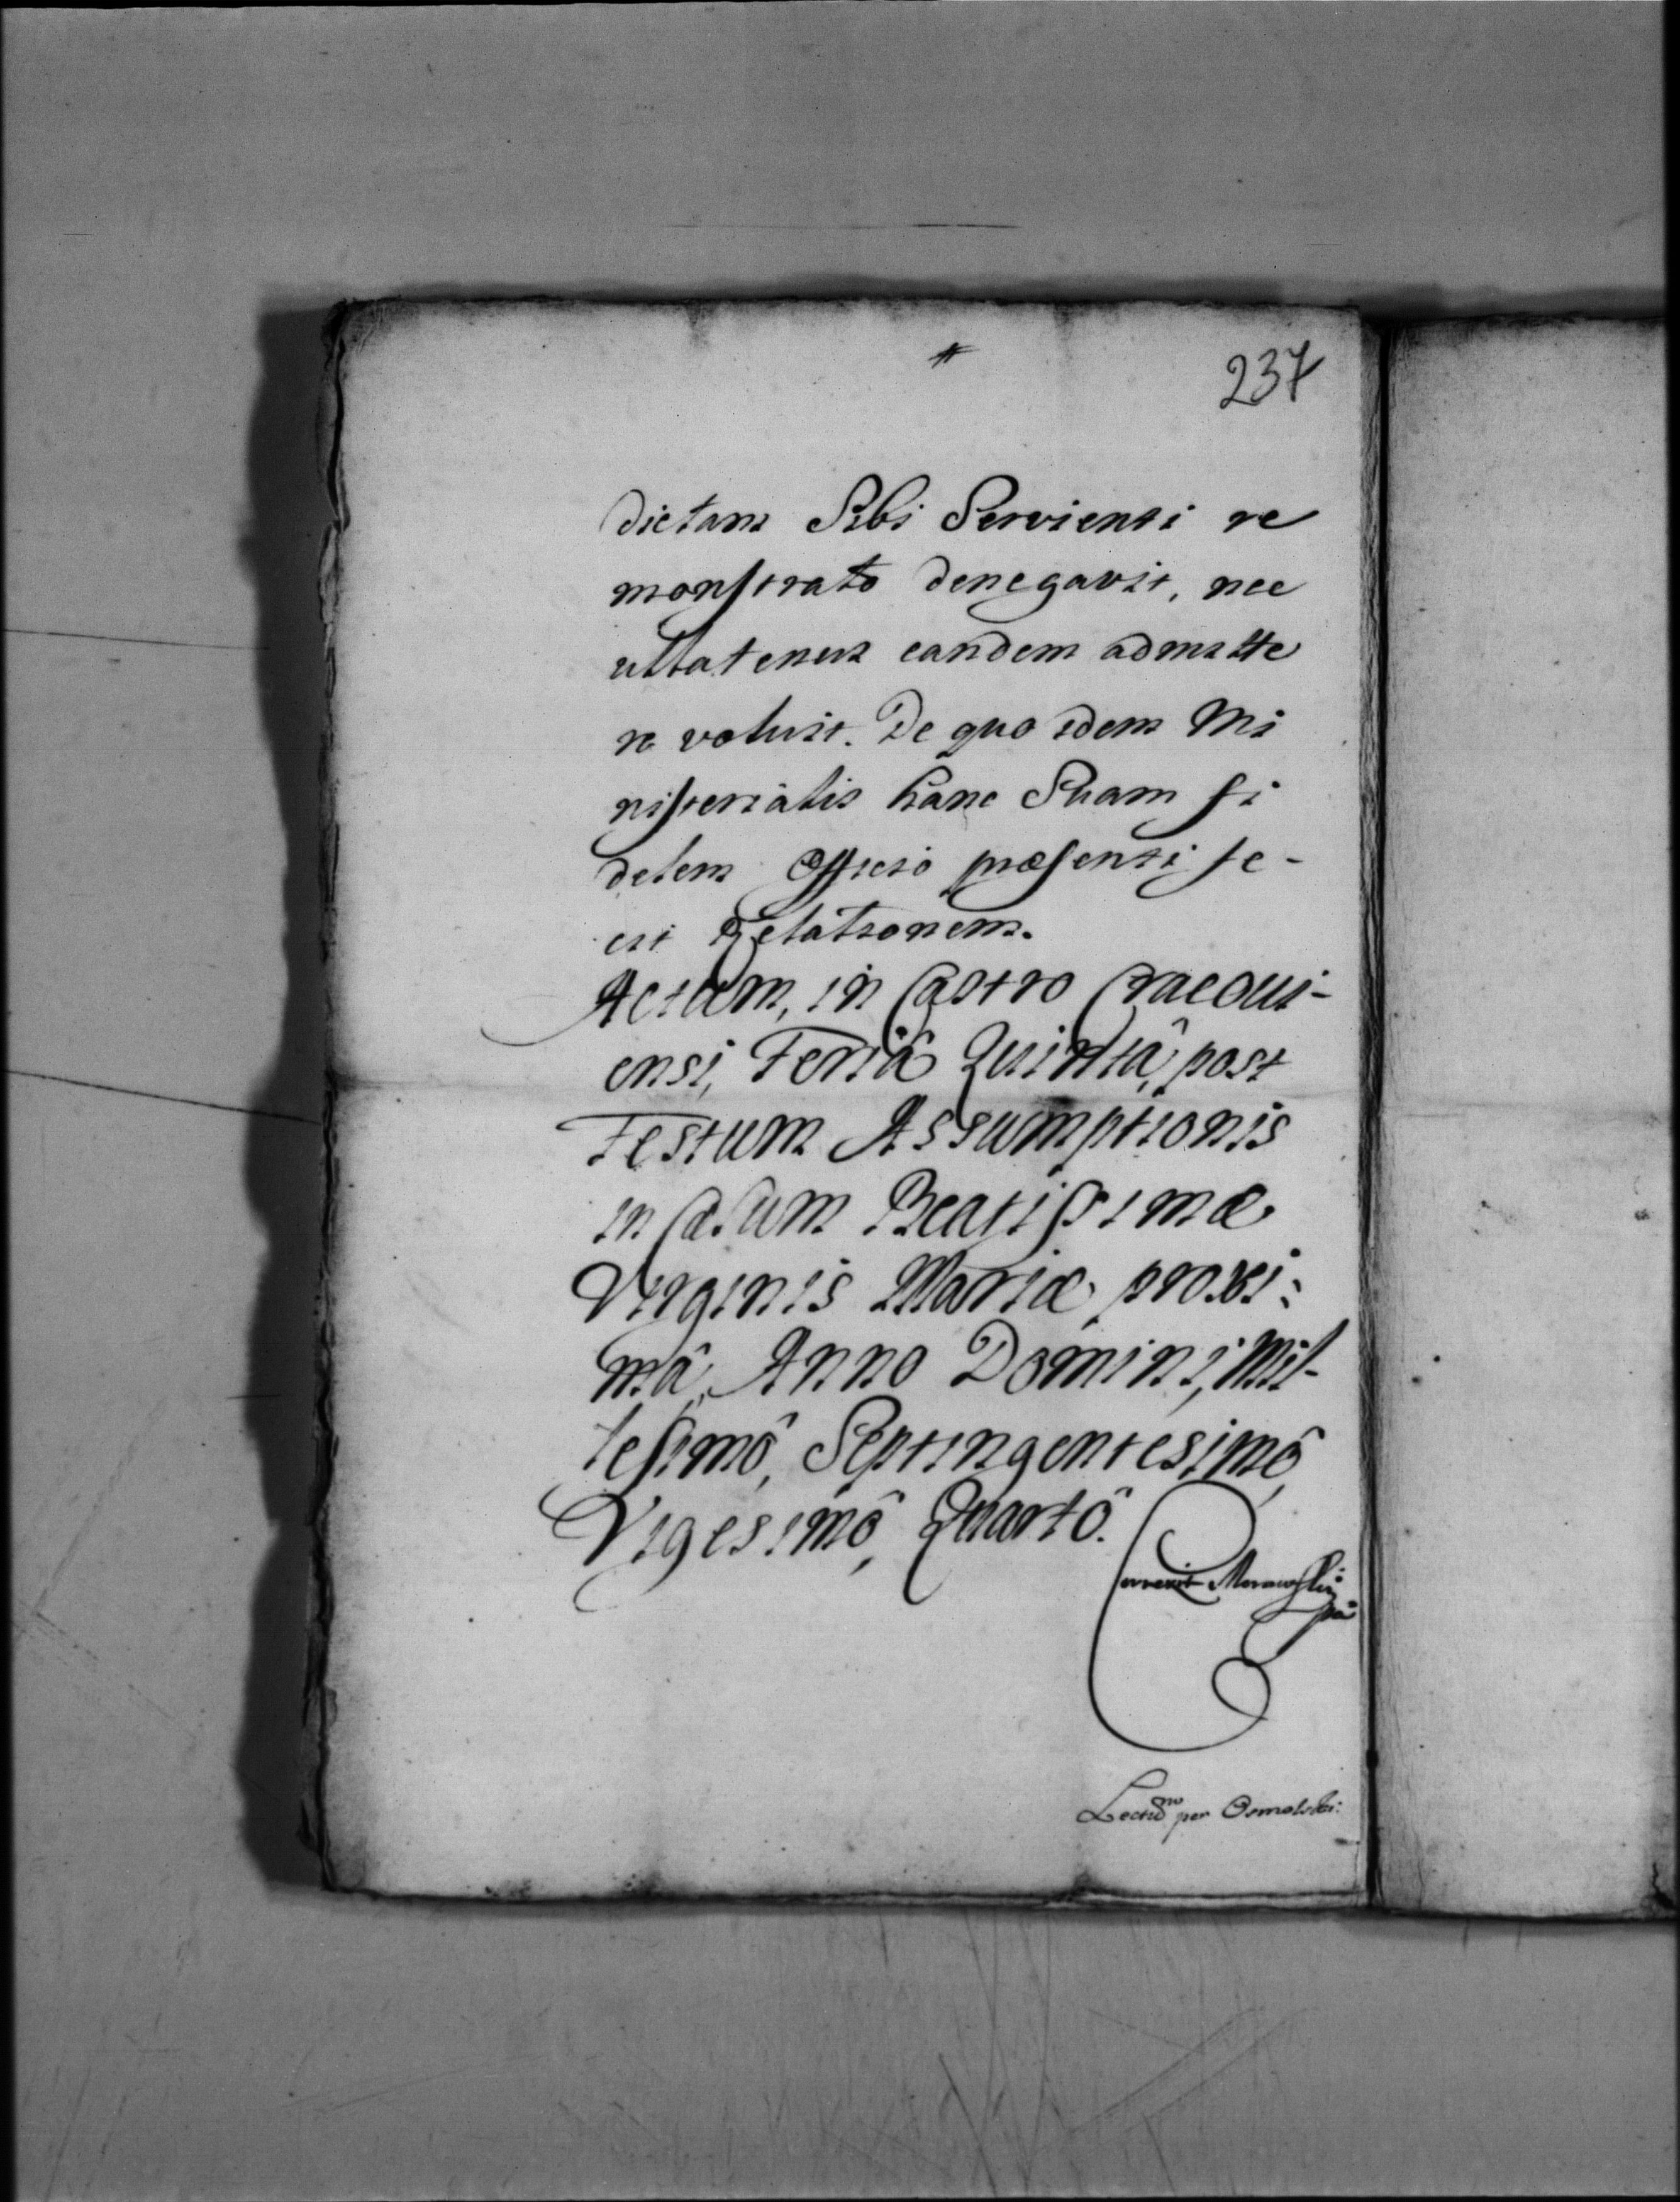 237
dictam Sibi Servienti re
monstrato denegavit, nec
ullatenus eandem admitte
re voluit. De quo idem Mi
nisterialis hanc Suam fi
delem Officio præsenti fe-
cit Relationem.
Actum, in Castro Cracovi-
ensi, Feriâ Quintâ, post
Festum Assumptionis
in Cælum Beatissimæ
Virginis Mariæ, proxi:
mâ, Anno Domini, Mil-
lesimô, Septingentesimô,
Vigesimô, Quartô.
Correxit Morawski
Lectum per Osmolski: